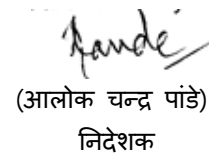 Pande
(आलोक चन्द्र पांडे)
निदेशक